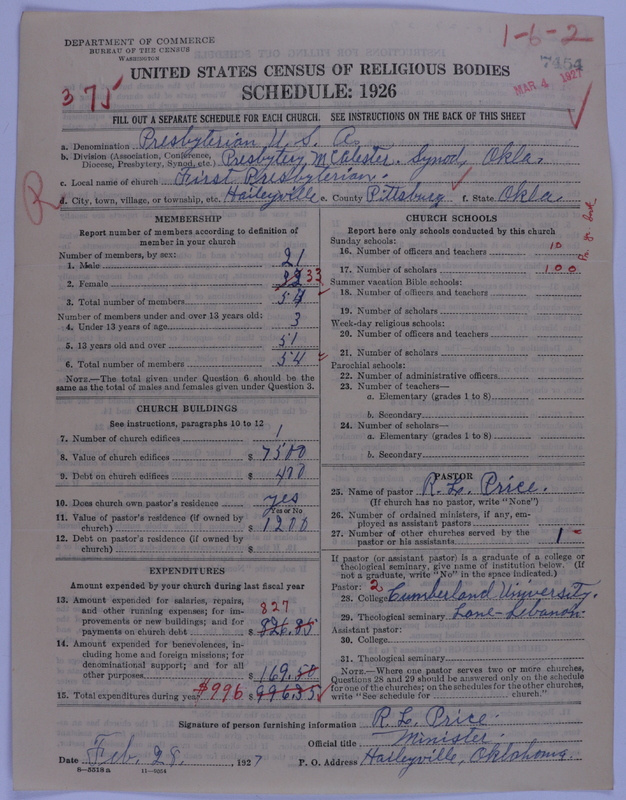 1-6-2
DEPARTMENT OF COMMERCE
BUREAU OF THE CENSUS
WASHINGTON
7454
MAR 4 1927
UNITED STATES CENSUS OF RELIGIOUS BODIES
SCHEDULE: 1926
375
FILL OUT A SEPARATE SCHEDULE FOR EACH CHURCH. SEE INSTRUCTIONS ON THE BACK OF THIS SHEET
a. Denomination Presbyterian U. S. A.
b. Division (Association, Conference, Diocese, Presbytery, Synod, etc.) Presbytery McAlester. Synod, Okla.
c. Local name of church First Presbyterian.
R
d. City, town, village, or township, etc. Haileyville e. County Pittsburg f. State Okla.
MEMBERSHIP
Report number of members according to definition of
member in your church
Number of members, by sex:
1. Male 21
2. Female 33
3. Total number of members 54
Number of members under and over 13 years old:
4. Under 13 years of age 3
5. 13 years old and over 51
6. Total number of members 54
NOTE.—The total given under Question 6 should be the
same as the total of males and females given under Question 3.
CHURCH BUILDINGS
See instructions, paragraphs 10 to 12
7. Number of church edifices 1
8. Value of church edifices $ 7500
9. Debt on church edifices $ 400
10. Does church own pastor's residence yes
Yes or No
11. Value of pastor's residence (if owned by
church) $ 1200
12. Debt on pastor's residence (if owned by
church) $
EXPENDITURES
Amount expended by your church during last fiscal year
13. Amount expended for salaries, repairs,
and other running expenses; for im-
provements or new buildings; and for
payments on church debt $ 826.85
827
14. Amount expended for benevolences, in-
cluding home and foreign missions; for
denominational support; and for all
other purposes $ 169.50
15. Total expenditures during year $996 $ 996.35
CHURCH SCHOOLS
Report here only schools conducted by this church
Sunday schools:
16. Number of officers and teachers 10
17. Number of scholars 100
Summer vacation Bible schools:
18. Number of officers and teachers
19. Number of scholars
Week-day religious schools:
20. Number of officers and teachers
21. Number of scholars
Parochial schools:
22. Number of administrative officers
23. Number of teachers—
a. Elementary (grades 1 to 8)
b. Secondary
24. Number of scholars—
a. Elementary (grades 1 to 8)
b. Secondary
PASTOR
25. Name of pastor R. L. Price.
(If church has no pastor, write "None")
26. Number of ordained ministers, if any, em-
ployed as assistant pastors
27. Number of other churches served by the
pastor or his assistants 1
If pastor (or assistant pastor) is a graduate of a college or
theological seminary, give name of institution below. (If
not a graduate, write "No" in the space indicated.)
Pastor: 2
28. College Cumberland University.
29. Theological seminary Lane-Lebanon
Assistant pastor:
30. College
31. Theological seminary
NOTE.—Where one pastor serves two or more churches,
Questions 28 and 29 should be answered only on the schedule
for one of the churches; on the schedules for the other churches,
write "See schedule for church."
Signature of person furnishing information R. L. Price.
Official title Minister.
Date Feb. 28, 1927 P. O. Address Haileyville, Oklahoma.
8—5518 a 11—9064